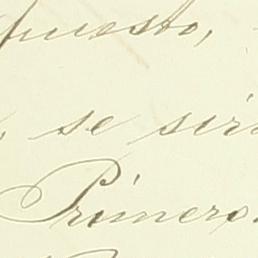 puesto,
, se
Primero.